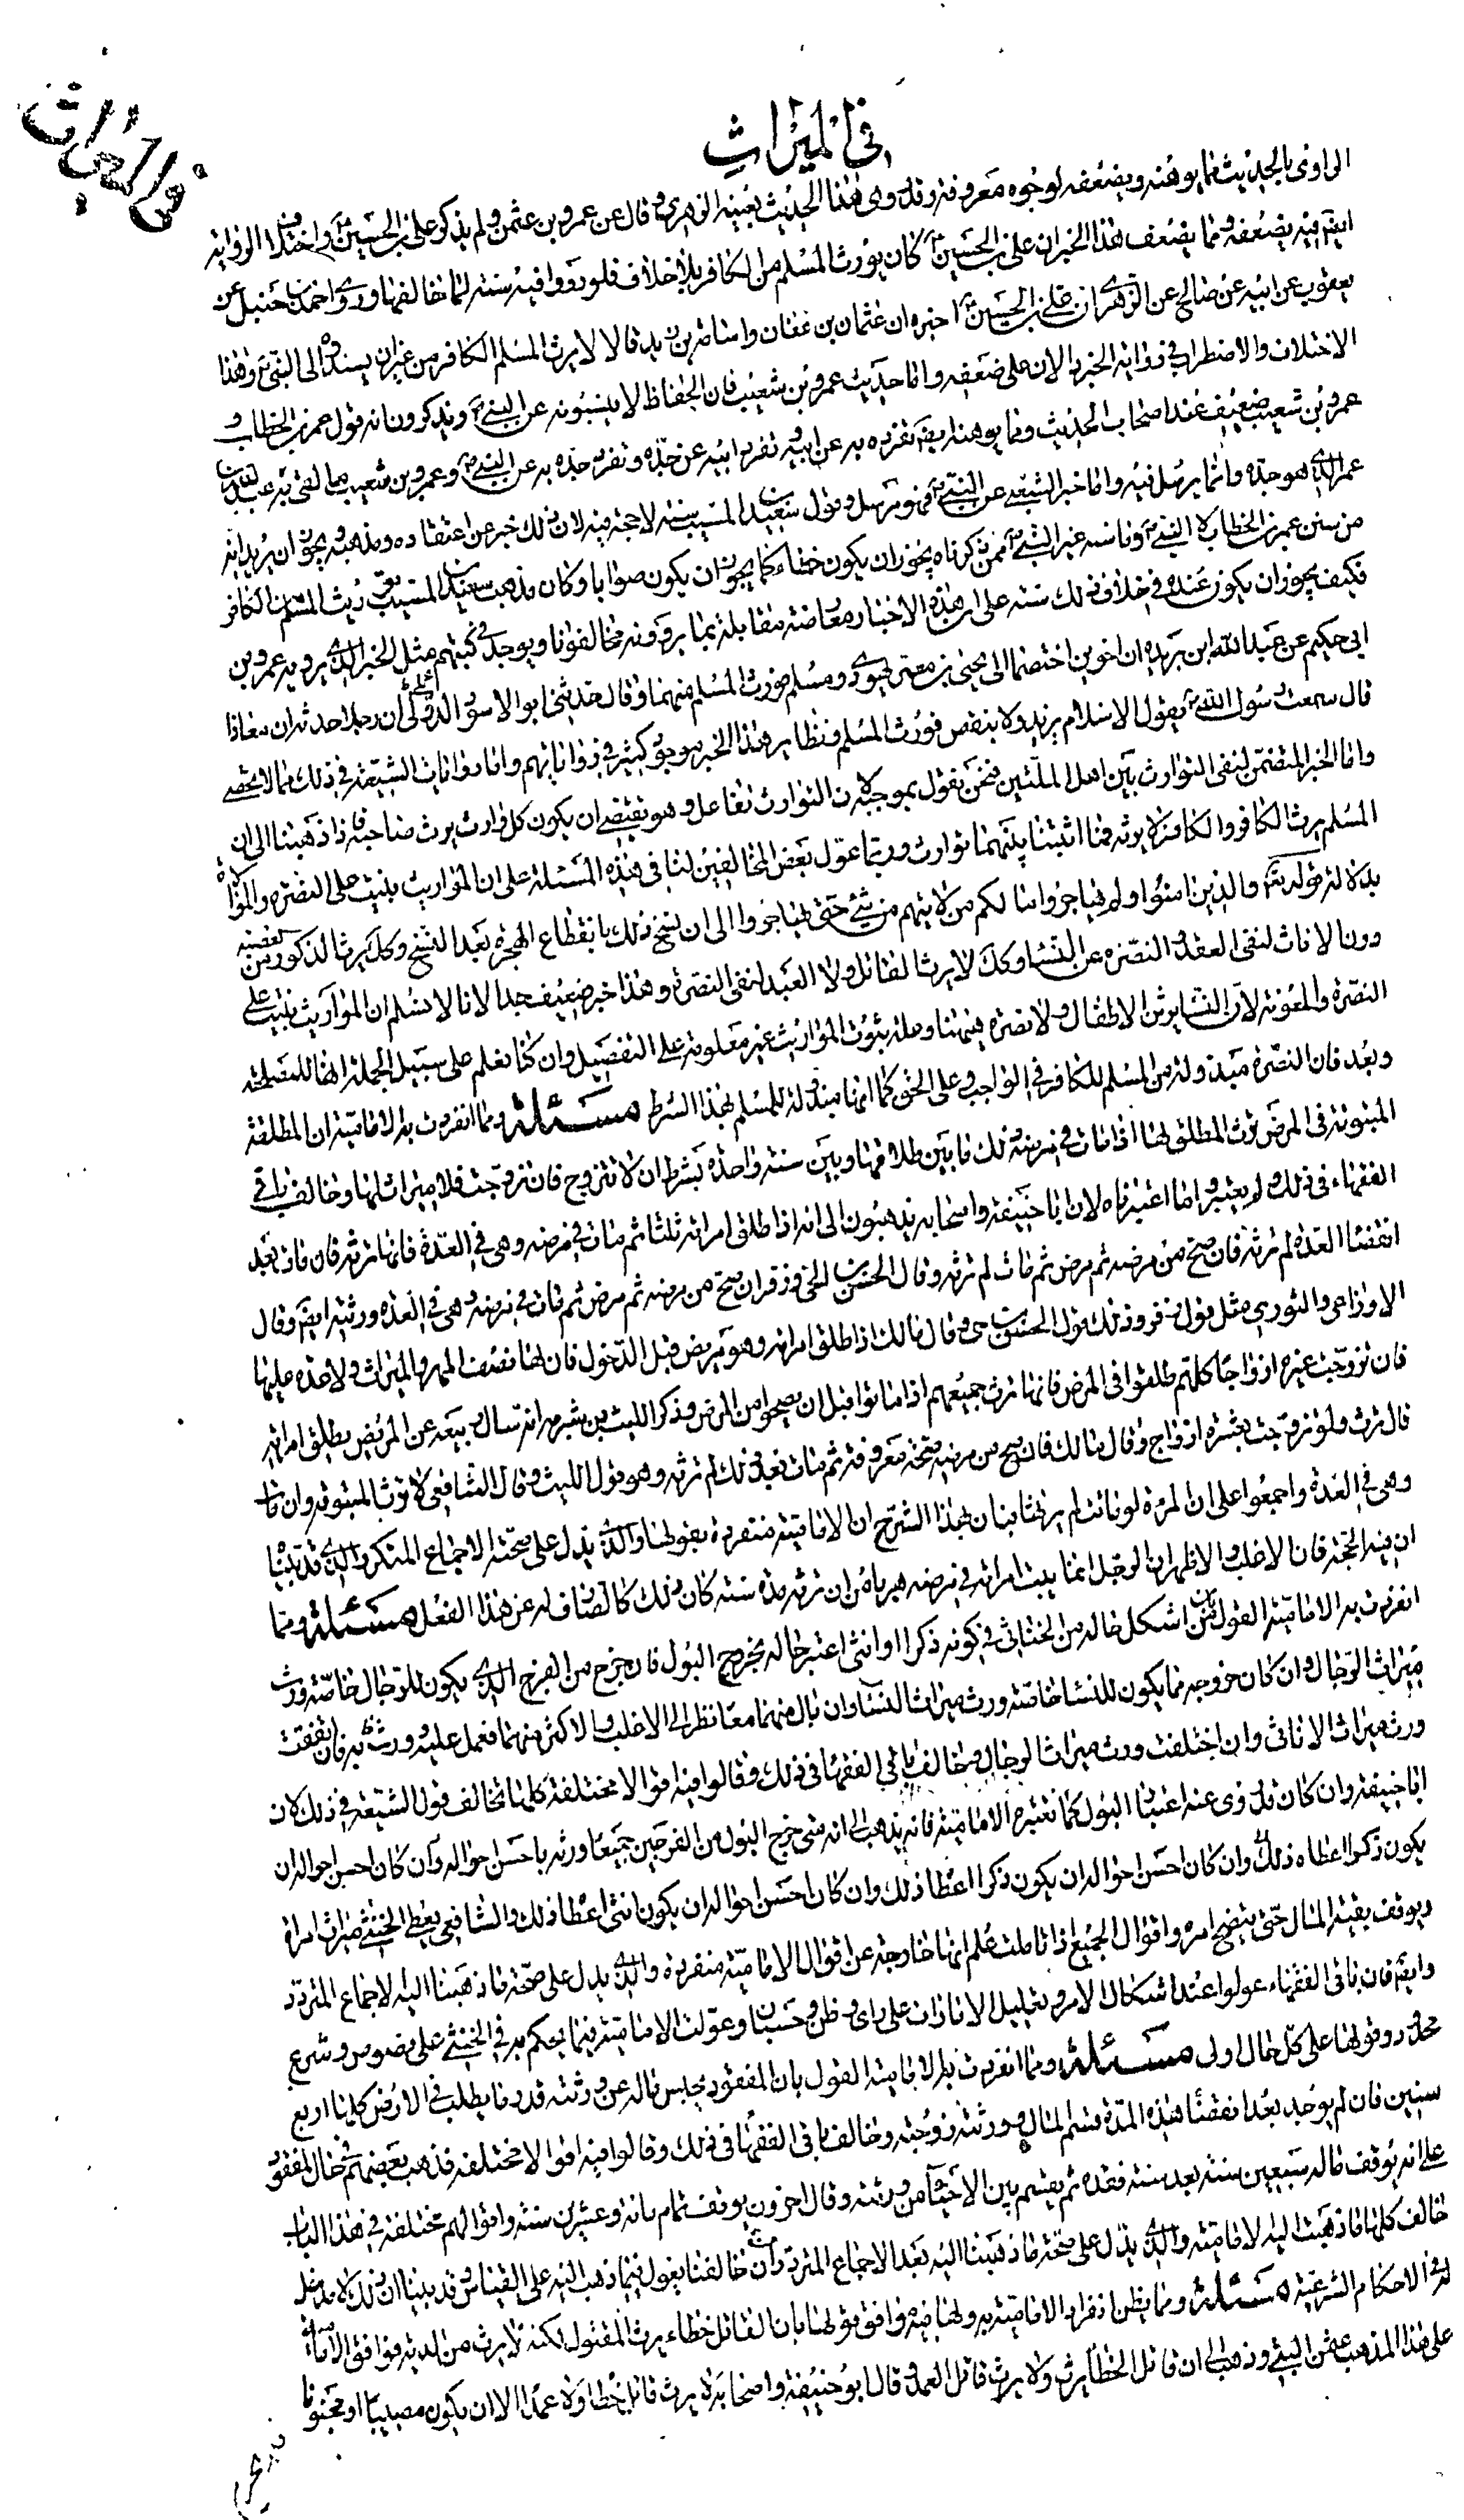 في الميراث
في الميراث
الراوي بالحديث مما يوهنه ويضعفه لوجوه معروفة وقد روى هذا الحديث بعينه الزهري وقال عن عمرو بن عثمن ولم يذكر علي بن الحسين ع واختلال الرواية
ايضا فيه يضعفه ومما يضعف هذا الخبر ان علي بن الحسين ع كان يورث المسلم من الكافر بلا خلاف فلو روى فيه سنة لما خالفها وروى احمد بن حنبل عن
يعقوب عن ابيه عن صالح عن الزهري ان علي بن الحسين ع اخبره ان عثمان بن عفان واسامة بن زيد قالا لا يرث المسلم الكافر من غير ان يسنداه الى النبي ص وهذا
الاختلاف والاضطراب في رواية الخبر دالان على ضعفه واما حديث عمرو بن شعيب فان الحفاظ لا ينسبونه عن النبي ص ويذكرون انه قول عمر بن الخطاب و
عمرو بن شعيب ضعيف عند اصحاب الحديث ومما يوهنه ايضا تفرده به عن ابيه وتفرد ابيه عن جده وتفرد جده به عن النبي ص وعمرو بن شعيب ما لقي عبد الله بن
عمر الذي هو جده وانما يرسل فيه واما خبر الشعبي عن النبي ص فهو مرسل وقول سعيد بن المسيب سنة لا حجة فيه لان ذلك خبر عن اعتقاده ومذهبه ويجوز ان يريد انه
من سنن عمر بن الخطاب لا النبي ص وما سنه غير النبي ص ممن ذكرناه يجوز ان يكون خطاء كما يجوز ان يكون صوابا وكان مذهب سعيد بن المسيب توريث المسلم الكافر
فكيف يجوز ان يكون عنده في خلاف ذلك سنة على ان هذه الاخبار معارضة مقابلة بما يروونه مخالفونا ويوجد في كتبهم مثل الخبر الذي يرويه عمرو بن
ابي حكيم عن عبد الله ابن بريده ان اخوين اختصما الى يحيى بن معمر يهودي ومسلم فورث المسلم منهما وقال حدثني ابو الاسود الدؤلي ان رجلا حدثه ان معاذا
قال سمعت رسول الله ص يقول الاسلام يزيد ولا ينقص فورث المسلم ونظاير هذا الخبر موجود كثير في رواياتهم واما روايات الشيعة في ذلك مما لا تحصى
واما الخبر المتضمن لنفي التوارث بين اهل الملتين فنحن نقول بموجبه لان التوارث تفاعل وهو يقتضي ان يكون كل وارث يرث صاحبه فاذا ذهبنا الى ان
المسلم يرث الكافر والكافر لا يرثه فما اثبتنا بينهما توارث وربما عول بعض المخالفين لنا في هذه المسئلة على ان المواريث بنيت على النصره والموالاة
بدلالة قوله تعالى والذين امنوا ولم يهاجروا ما لكم من ولايتهم من شيء حتى يهاجروا الى ان نسخ ذلك بانقطاع الهجرة بعد الفتح وكذا يرث الذكور من العصبة
دون الاناث لنفي العقد والنصره عن النساء وكذا لا يرث القاتل ولا العبد لنفي النصرة وهذا خبر ضعيف جدا لانا لا نسلم ان المواريث بنيت على
النصرة والمعونة لان النساء يرثن والاطفال ولا نصره فيهما وعلة ثبوت المواريث غير معلومة على التفصيل وان كنا نعلم على سبيل الجملة انها للمصلحة
وبعد فان النصره مبذولة من المسلم للكافر في الواجب وعلى الحق كما انها مبذولة للمسلم بهذا الشرط مسئلة ومما انفردت به الامامية ان المطلقة
المبتوتة في المرض ترث المطلق لها اذا مات في مرضه ذلك ما بين طلاقها وبين سنة واحدة بشرط ان لا تتزوج فان تزوجت فلا ميراث لها وخالف باقي
الفقهاء في ذلك ولم يعتبروا ما اعتبرناه لان ابا حنيفة واصحابه يذهبون الى انه اذا طلق امراته ثلثا ثم مات في مرضه وهي في العدة فانها ترثه فان مات بعد
انقضاء العدة لم ترثه فان صح من مرضه ثم مرض ثم مات لم ترثه وقال الحسن بن حي وزفر ان صح من مرضه ثم مرض ثم مات في مرضه وهي في العده ورثته ايضا وقال
الاوزاعي والثوري مثل قول زفر وذلك قول الحسن بن حي وقال مالك اذا طلق امراته وهو مريض قبل الدخول فان لها نصف المهر والميراث ولا عده عليها
فان تزوجت عشرة ازواجا كلهم طلقوا في المرض فانها ترث جميعهم اذا ماتوا قبل ان يصحوا من المرض وذكر الليث بن شبرمه انه سال ربيعه عن المريض يطلق امراته
قال ترث ولو تزوجت بعشرة ازواج وقال مالك فان صح من مرضه صحة معروفة ثم مات بعد ذلك لم ترثه وهو قول الليث وقال الشافعي لا ترث المبتوته وان مات
وهي في العدة واجمعوا على ان المرءة لو ماتت لم يرثها فبان بهذا الشرح ان الامامية متفردة بقولها والذي يدل على صحته الاجماع المتكرر والذي قد بينا
ان فيه الحجة فان الاغلب والاظهر ان الرجل انما يبت امراته في مرضه هربا من ان ترثه مدة سنة كان ذلك كالصارف له عن هذا الفعل مسئلة ومما
انفردت به الامامية القول بان من اشكل حاله من الخناثى في كونه ذكرا او انثى اعتبر حاله بخروج البول فان خرج من الفرج الذي يكون للرجال خاصة ورث
ميراث الرجال وان كان خروجه مما يكون للنساء خاصة ورث ميراث النساء وان بال منهما معا نظر الى الاغلب والاكثر منهما فعمل عليه وورث به فان اتفقت
ورث ميراث الاناث وان اختلفت ورث ميراث الرجال وخالف باقي الفقهاء في ذلك وقالوا فيه اقوالا مختلفة كلها تخالف قول الشيعة في ذلك لان
ابا حنيفة وان كان قد روى عنه اعتبار البول كما تعتبره الامامية فانه يذهب الى انه متى خرج البول من الفرجين جميعا ورثه باحسن احواله وان كان احسن احواله ان
يكون ذكرا اعطاه ذلك وان كان احسن احواله ان يكون ذكرا اعطا ذلك وان كان احسن احواله ان يكون انثى اعطا ذلك والشافعي يعطي الخنثى ميراث امراة
ويوقف بقية المال حتى يتضح امره واقوال الجميع اذا تاملت علم انها خارجة عن اقوال الامامية منفردة والذي يدل على صحة ما ذهبنا اليه الاجماع المتردد
وايضا فان باقي الفقهاء عولوا عند اشكال الامر وتقابل الامارات على راى وظن وحسبان وعولت الامامية فيما يحكم به في الخنثى على نصوص وشرع
محدود وقولها على كل حال اولى مسئلة ومما انفردت به الامامية القول بان المفقود يحبس ماله عن ورثته قدر ما يطلب في الارض كلها اربع
سنين فان لم يوجد بعد انقضاء هذه المدة قسم المال بين ورثته وزوجته وخالف باقي الفقهاء في ذلك وقالوا فيه اقوالا مختلفه فذهب بعضهم في حال المفقود
على انه يوقف ماله سبعين سنة بعد سنة فقده ثم يقسم بين الاحياء من ورثته وقال اخرون يوقف تمام مائة وعشرين سنة واقوالهم مختلفة في هذا الباب
خالف كلها ما ذهبت اليه الامامية والذي يدل على صحة ما ذهبنا اليه بعد الاجماع المتردد ان من خالفنا يعول فيما ذهب اليه على القياس وقد بينا ان ذلك لا مدخل
له في الاحكام الشرعية مسئلة ومما يظن انفراد الامامية به ولها فيه موافق قولها بان القاتل خطاء يرث المقتول لكنه لا يرث من الدية ووافق الامامية
على هذا المذهب عثمن البتي وذهب الى ان قاتل الخطاء يرث ولا يرث قاتل العمد وقال ابو حنيفة واصحابه لا يرث قاتل خطا ولا عمدا الا ان يكون صبيا او مجنونا